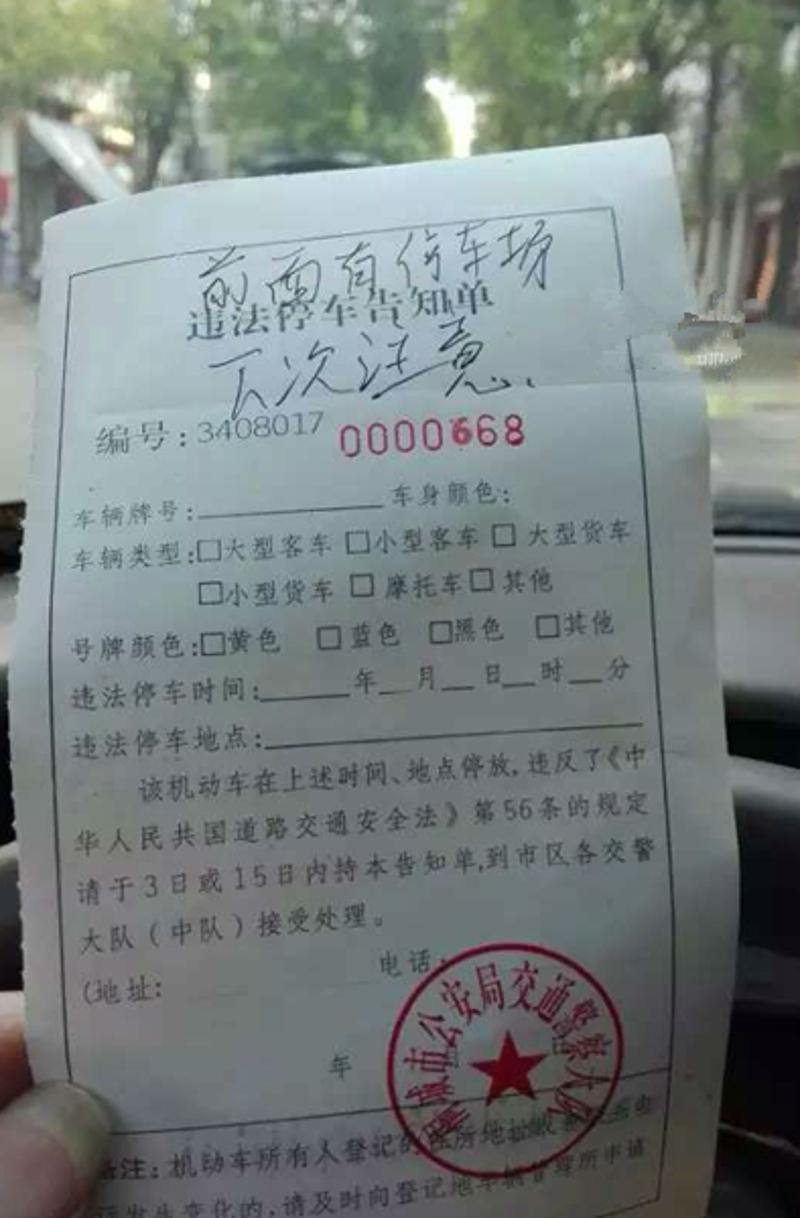 前面有停车场
违法停车告知单
下次注意.
编号:3408017 0000668
车辆牌号: 车身颜色:
车辆类型:□大型客车 □小型客车 □ 大型货车
□小型货车 □ 摩托车 □ 其他
号牌颜色:□黄色 □ 蓝色 □黑色 □其他
违法停车时间: 年 月 日 时 分
违法停车地点:
该机动车在上述时间、地点停放,违反了《中
华人民共国道路交通安全法》第56条的规定
请于3日或15日内持本告知单,到市区各交警
大队(中队)接受处理。
(地址: 电话:
年
城市公安局交通警察大队
备注: 机动车所有人登记的住所地址
发生变化的,请及时向登记地车辆管理所申请